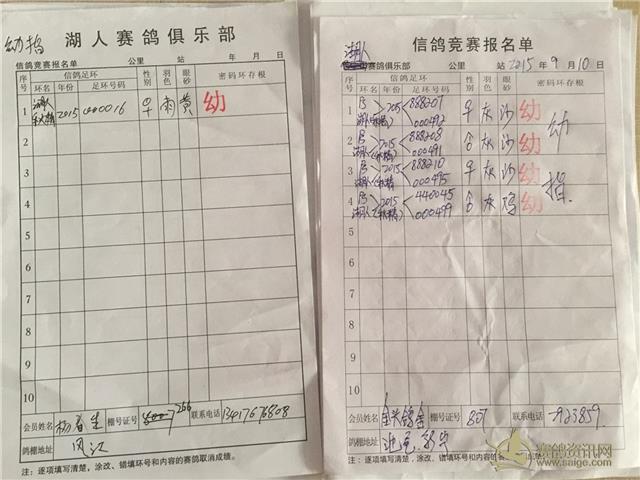 幼指
湖人赛鸽俱乐部
信鸽竞赛报名单
公里 站 年 月 日
序号 信鸽足环 性别 羽色 眼砂 密码环存根
环名 年份 足环号码
1 湖人 2015 000016 雨 黄 幼
2
3
4
5
6
7
8
9
10
会员姓名 杨春生 棚号证号 266 联系电话 13417676808
鸽棚地址 凤江
注:逐项填写清楚,涂改、错填环号和内容的赛鸽取消成绩。
信鸽竞赛报名单
湖人赛鸽俱乐部 公里 站 2015 年 9 月 10 日
序号 信鸽足环 性别 羽色 眼砂 密码环存根
环名 年份 足环号码
1 湖人 2015 888207 000492 灰 沙 幼
2 湖人 2015 888208 000491 灰 沙 幼
3 湖人 2015 888210 000495 灰 沙 幼
4 湖人 2015 440045 000499 灰 鸡 幼
幼指
5
6
7
8
9
10
会员姓名 棚号证号 807 联系电话
鸽棚地址
注:逐项填写清楚,涂改、错填环号和内容的
赛鸽资讯网
www.saige.com